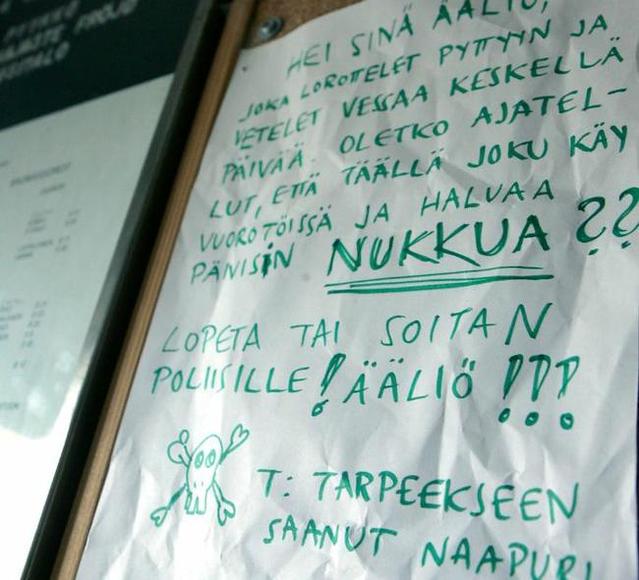 HEI SINÄ ÄÄLIÖ,
JOKA LOROTTELET PYTTYYN JA
VETELET VESSAA KESKELLÄ
PÄIVÄÄ. OLETKO AJATEL-
LUT, ETTÄ TÄÄLLÄ JOKU KÄY
VUOROTÖISSÄ JA HALUAA
PÄIVISIN NUKKUA??
LOPETA TAI SOITAN
POLIISILLE! ÄÄLIÖ!!!
T: TARPEEKSEEN
SAANUT NAAPURI